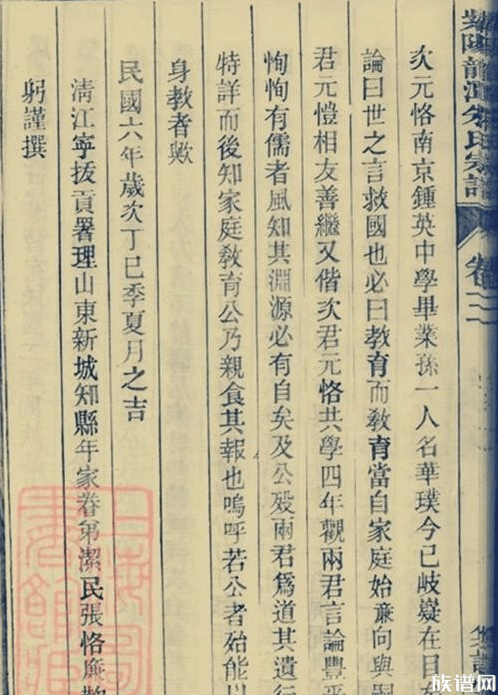 龍潭朱氏宗譜
卷
次元恪南京鍾英中學畢業孫一人名華璞今已岐嶷在目
論曰世之言救國也必曰教育而敎育當自家庭始向與
君元愷相友善繼又偕次君元恪共學四年觀兩君言論豐
恂恂有儒者風知其淵源必有自矣及公歿兩君爲道其遺行
特詳而後知家庭敎育公乃親食其報也嗚呼若公者殆能以
身敎者歟
民國六年歲次丁巳季夏月之吉
清江寧拔貢署理山東新城知縣年家眷弟潔民張恪廉
躬謹撰
族谱网